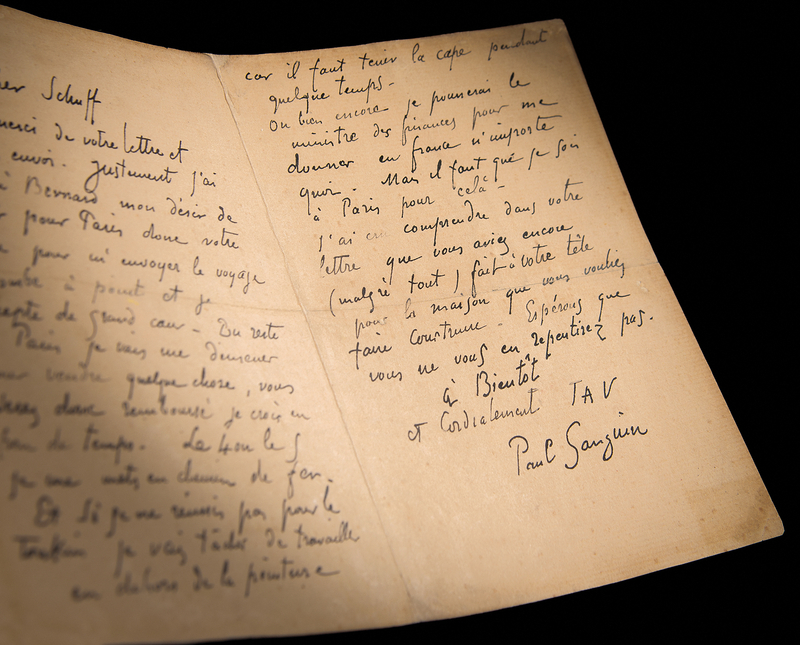 er Schuff
merci de votre lettre et
envoi. Justement j'ai
à Bernard mon désir de
pour Paris donc votre
pour m'envoyer le voyage
à point et je
de grand cœur - Du reste
Paris je vais me démener
vendre quelque chose, vous
donc remboursé je crois en
de temps. Le 4 ou le 5
je me mets en chemin de fer.
Et si je ne réussis pas pour le
Tonkin je vais tâcher de travailler
en dehors de la peinture
car il faut tenir la cape pendant
quelque temps -
Ou bien encore je pousserai le
ministre des finances pour me
donner en france n'importe
quoi. Mais il faut que je sois
à Paris pour celà -
J'ai cru comprendre dans votre
lettre que vous aviez encore
(malgré tout) fait à votre tête
pour la maison que vous vouliez
faire construire. Espérons que
vous ne vous en repentirez pas.
à Bientôt
et Cordialement TAV
Paul Gauguin